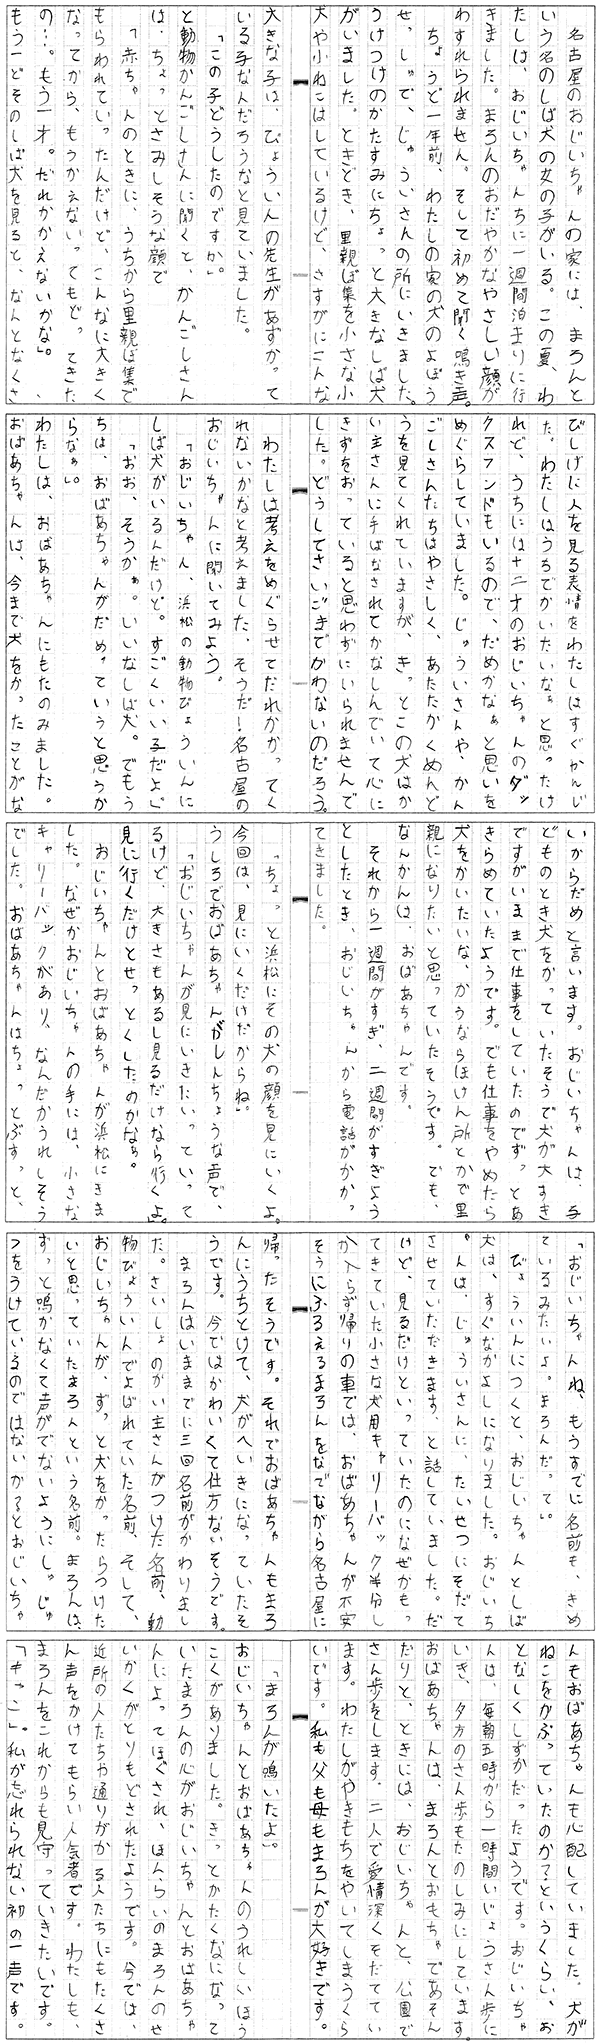 名古屋のおじいちゃんの家には、まろんと
いう名のしば犬の女の子がいる。この夏、わ
たしは、おじいちゃんちに一週間泊まりに行
きました。まろんのおだやかなやさしい顔が
わすれられません。そして初めて聞く鳴き声。
ちょうど一年前、わたしの家の犬のよぼう
せっしゅで、じゅういさんの所にいきました。
うけつけのかたすみにちょっと大きなしば犬
がいました。ときどき、里親ぼ集を小さな小
犬や小ねこはしているけど、さすがにこんな
大きな子は、びょういんの先生があずかって
いる子なんだろうなと見ていました。
「この子どうしたのですか。」
と動物かんごしさんに聞くと、かんごしさん
は、ちょっとさみしそうな顔で
「赤ちゃんのときに、うちから里親ぼ集で
もらわれていったんだけど、こんなに大きく
なってから、もうかえないってもどってきた
の…。もう一才。だれかかえないかな」。
もう一どそのしば犬を見ると、なんとなくさ
びしげに人を見る表情をわたしはすぐかんじ
た。わたしはうちでかいたいなぁと思ったけ
れど、うちには十二才のおじいちゃんのダッ
クスフンドもいるので、だめかなぁと思いを
めぐらしていました。じゅういさんや、かん
ごしさんたちはやさしく、あたたかくめんど
うを見てくれていますが、きっとこの犬はか
い主さんに手ばなされてかなしんでいて心に
きずをおっていると思わずにいられませんで
した。どうしてさいごまでかわないのだろう。
わたしは考えをめぐらせてだれかかってく
れないかなと考えました、そうだ!名古屋の
おじいちゃんに聞いてみよう。
「おじいちゃん、浜松の動物びょういんに
しば犬がいるんだけど。すごくいい子だよ」
「おお、そうかぁ。いいなしば犬。でもう
ちは、おばあちゃんがだめっていうと思うか
らなぁ」。
わたしは、おばあちゃんにもたのみました。
おばあちゃんは、今まで犬をかったことがな
いからだめと言います。おじいちゃんは、子
どものとき犬をかっていたそうで犬が大すき
ですがいままで仕事をしていたのでずっとあ
きらめていたようです。でも仕事をやめたら
犬をかいたいな、かうならほけん所とかで里
親になりたいと思っていたそうです。でも、
なんかんは、おばあちゃんです。
それから一週間がすぎ、二週間がすぎよう
としたとき、おじいちゃんから電話がかかっ
てきました。
「ちょっと浜松にその犬の顔を見にいくよ。
今回は、見にいくだけだからね」
うしろでおばあちゃんがしんちょうな声で、
「おじいちゃんが見にいきたいっていって
るけど、大きさもあるし見るだけなら行くよ」。
見に行くだけとせっとくしたのかなぁ。
おじいちゃんとおばあちゃんが浜松にきま
した。なぜかおじいちゃんの手には、小さな
キャリーバックがあり、なんだかうれしそう
でした。おばあちゃんはちょっとぶすっと、
「おじいちゃんね、もうすでに名前も、きめ
ているみたいよ。まろんだって」
びょういんにつくと、おじいちゃんとしば
犬は、すぐなかよしになりました。おじいち
ゃんは、じゅういさんに、たいせつにそだて
させていただきます、と話していました。だ
けど、見るだけといっていたのになぜかもっ
てきていた小さな犬用キャリーバック半分し
か入らず帰りの車では、おばあちゃんが不安
そうにふるえるまろんをなでながら名古屋に
帰ったそうです。それでおばあちゃんもまろ
んにうちとけて、犬がへいきになっていたそ
うです。今ではかわいくて仕方ないそうです。
まろんはいままでに三回名前がかわりまし
た。さいしょのかい主さんがつけた名前、動
物びょういんでよばれていた名前、そして、
おじいちゃんが、ずっと犬をかったらつけた
いと思っていたまろんという名前。まろんは、
ずっと鳴かなくて声がでないようにしゅじゅ
つをうけているのではないか?とおじいちゃ
んもおばあちゃんも心配していました。犬が
ねこをかぶっていたのか?というくらい、お
となしくしずかだったようです。おじいちゃ
んは、毎朝五時から一時間いじょうさん歩に
いき、夕方のさん歩もたのしみにしています。
おばあちゃんは、まろんとおもちゃであそん
だりと、ときには、おじいちゃんと、公園で
さん歩をします。二人で愛情深くそだててい
ます。わたしがやきもちをやいてしまうくら
いです。私も父も母もまろんが大好きです。
「まろんが鳴いたよ」。
おじいちゃんとおばあちゃんのうれしいほう
こくがありました。きっとかたくなになって
いたまろんの心がおじいちゃんとおばあちゃ
んによってほぐされ、ほんらいのまろんのせ
いかくがとりもどされたようです。今では、
近所の人たちや通りがかる人たちにもたくさ
ん声をかけてもらい人気者です。わたしも、
まろんをこれからも見守っていきたいです。
「キャン」。私が忘れられない初の一声です。